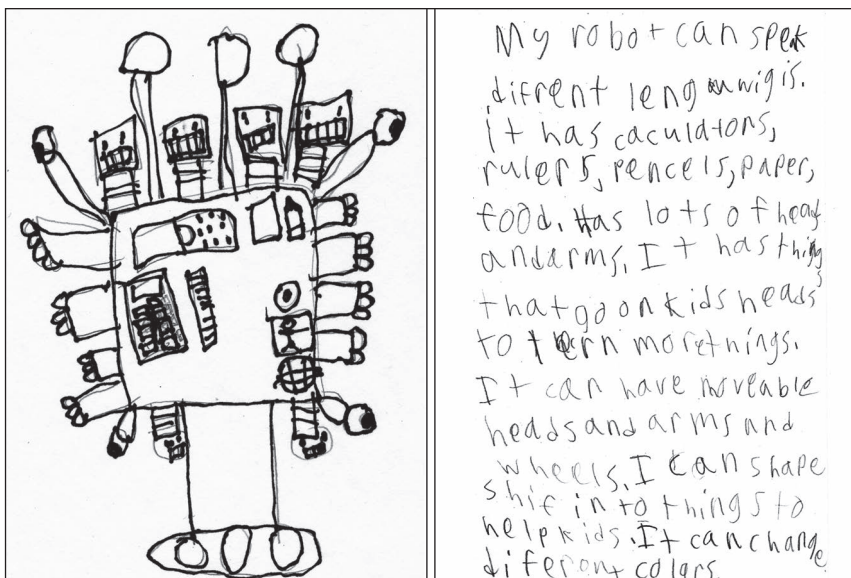 My robot can speak
difrent lengunwigis.
it has caculators,
rulers, pencels, paper,
food. Has lots of heads
and arms. It has things
that go on kids heads
to lern more things.
It can have moveable
heads and arms and
wheels. I can shape
shif into things to
help kids. It can change
diferent colors.